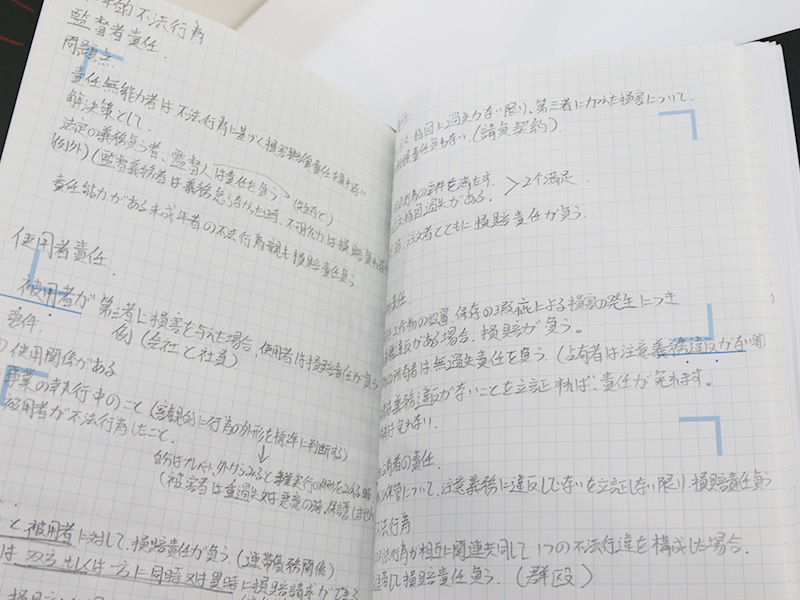 的不法行為
監督者責任.
問題点
責任無能力者は不法行為に基づく損害賠償責任を負わない
解決策として.
法定の義務負う者、監督人は責任を負う
(例外)(監督義務者は義務怠らなかった時、不可欠力は損賠負わ
責任能力がある未成年者の不法行為親も損賠責任負う
使用者責任.
被用者が第三者に損害を与えた場合、使用者は損賠責任が負う
要件. 例(会社と社員)
使用関係がある
事業の執行中のこと(客観的に行為の外形を標準に判断する)
被用者が不法行為したこと.
(被害者は重過失又は悪意の時、保護しません
と被用者に対して、損賠責任が負う(連帯債務関係)
は双方もしくは一方に同時又は異時に損賠請求ができて
指図に過失がない限り、第三者に加えた損害について.
賠責任負わない(請負契約).
の要件を満たす.
指図過失がある. > 2個満足.
注文者とともに損賠責任が負う.
責任.
工作物の設置、保存の瑕疵による損害の発生につき
違反がある場合、損賠が負う。
所有者は無過失責任を負う(占有者は注意義務違反がない時)
義務違反がないことを立証すれば、責任が免れます。
は免れない.
占有者の責任.
保管について、注意義務に違反してないを立証しない限り、損賠責任負う
不法行為
不法行為が相互に関連共同して1つの不法行違を構成した場合.
連帯して損賠責任負う.(群殴)